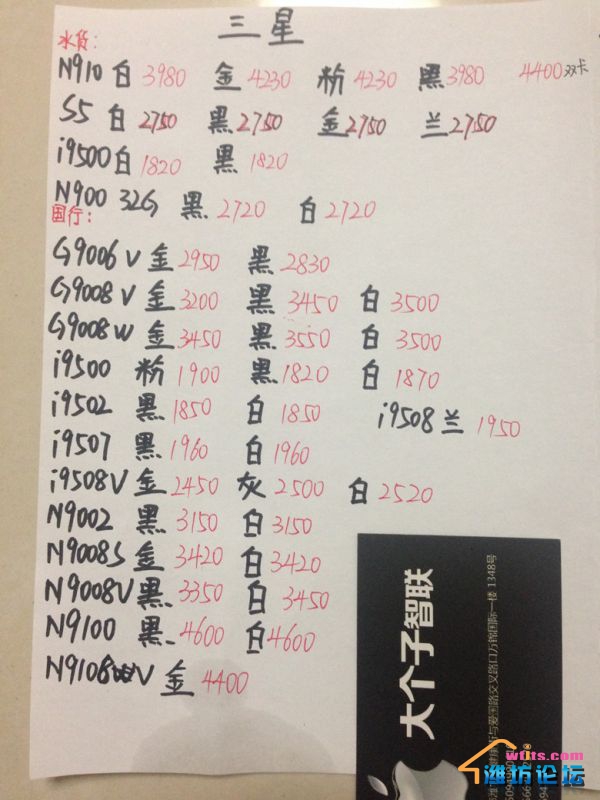 三星
水货:
N910 白 3980 金 4230 粉 4230 黑 3980 4400 双卡
S5 白 2750 黑 2750 金 2750 兰 2750
i9500 白 1820 黑 1820
N900 32G 黑 2720 白 2720
国行:
G9006V 金 2950 黑 2830
G9008V 金 3200 黑 3450 白 3500
G9008W 金 3450 黑 3550 白 3500
i9500 粉 1900 黑 1820 白 1870
i9502 黑 1850 白 1850 i9508 兰 1950
i9507 黑 1960 白 1960
i9508V 金 2450 灰 2500 白 2520
N9002 黑 3150 白 3150
N9008S 金 3420 白 3420
N9008V 黑 3350 白 3450
N9100 黑 4600 白 4600
N9108V 金 4400
大个子智联
与爱国路交叉路口万锦国际一楼 1348号
wfits.com
潍坊论坛